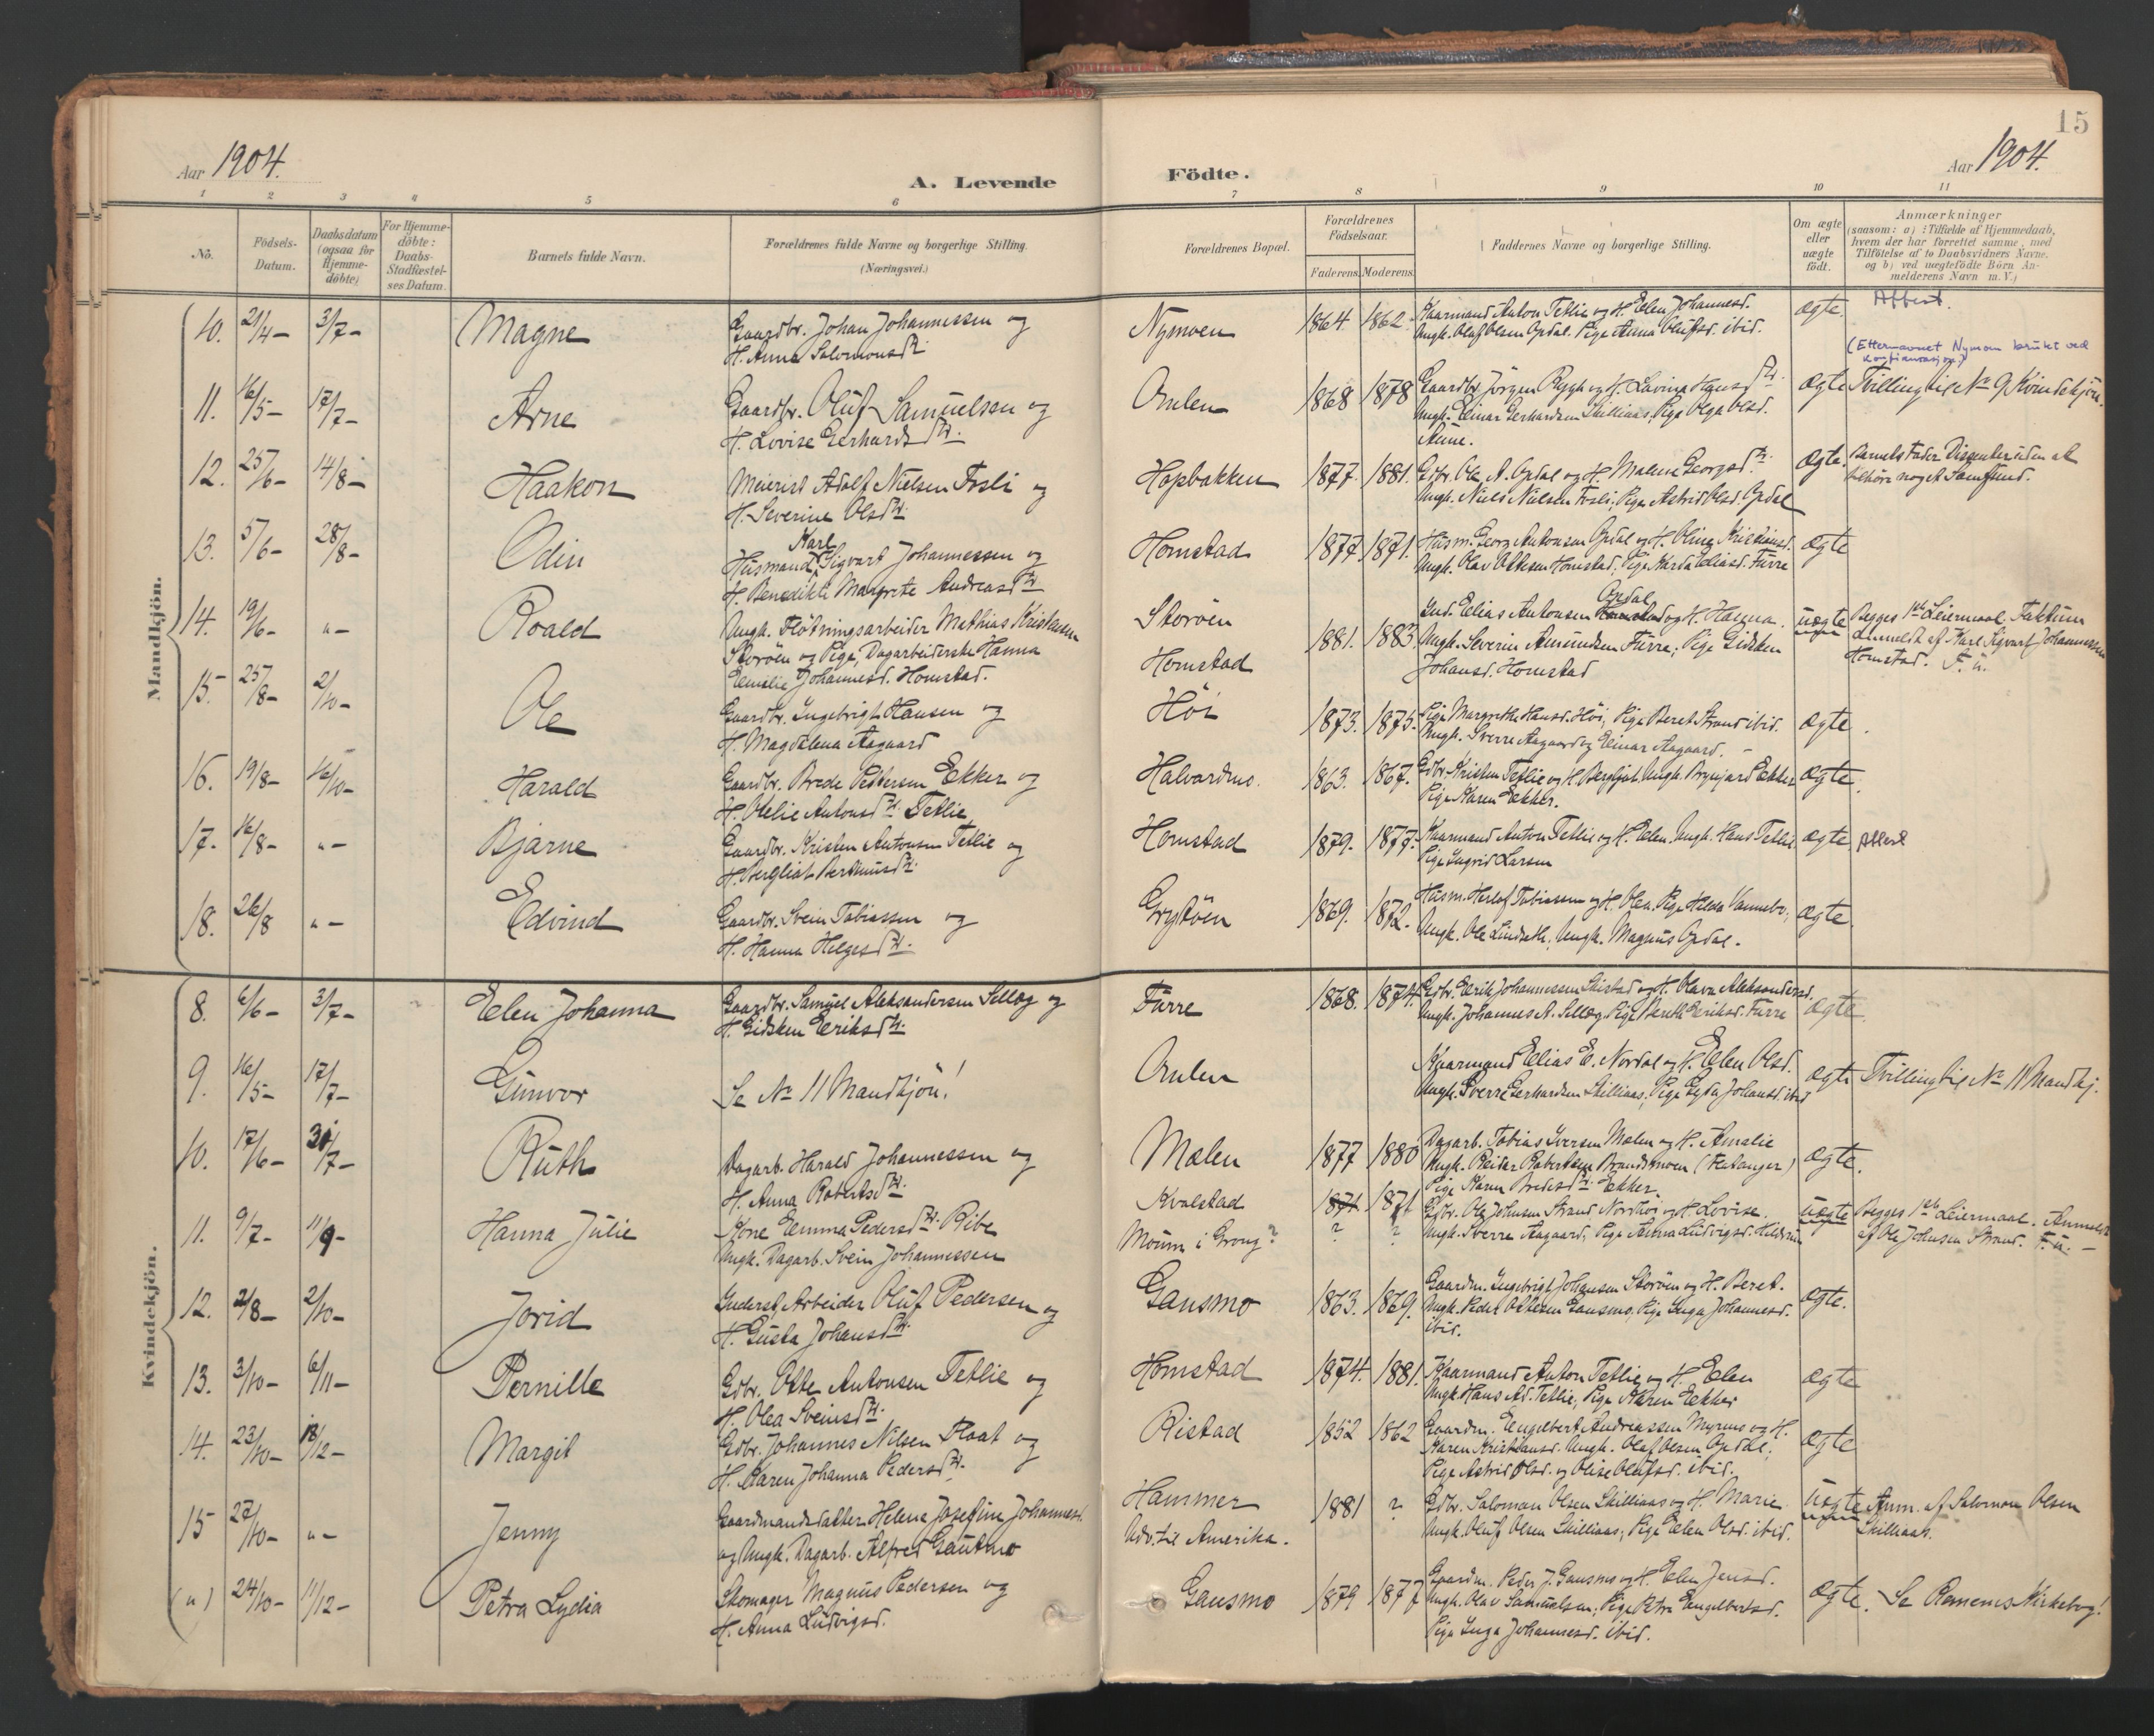 15
Aar 1904.
A. Levende Födte.
Aar 1904.
1 2 3 4 5 6 7 8 9 10 11
No.
Födsels-Datum.
Daabsdatum (ogsaa for Hjemme-döbte)
For Hjemme-döbte: Daabs-Stadfæstel-ses Datum.
Barnets fulde Navn.
Forældrenes fulde Navne og borgerlige Stilling.
(Næringsvei.)
Forældrenes Bopæl.
Forældrenes Födselsaar.
Faderens. Moderens.
Faddernes Navne og borgerlige Stilling.
Om ægte eller uægte födt.
Anmærkninger
(saasom: a) i Tilfælde af Hjemmedaab, hvem der har forrettet samme, med Tilföielse af to Daabsvidners Navne, og b) ved uægtefödte Börn An-melderens Navn m. V.)
Mandkjön.
10. 21/4- 3/7- Magne
Gaardbr. Johan Johannessen og
H. Anna Salomonsdtr.
Nymoen 1864 1862.
Kaarmand Anton Tetlie og H. Elen Johannesd.
Ungk. Olaf Olsen Opdal. Pige Anna Olufsd. ibid.
ægte. Attest.
(Etternavnet Nymoen brukt ved
konfirmasjon)
11. 16/5- 17/7- Arne
Gaardbr. Oluf Samuelsen og
H. Lovise Gerhardsdtr.
Omlen 1868 1878
Gaardbr. Jörgen Rygh og H. Lavina Hansdtr.
Ungk. Einar Gerhardsen Skilliaas, Pige Olga Olsd.
Aune.
ægte Tvilling til No 9 Kvindekjön.
12. 25/6- 14/8- Haakon
Meierist Adolf Nielsen Fosli og
H. Severine Olsdtr.
Hopbakken 1877 1881.
Gdbr. Ole A. Opdal og H. Malena Georgsdtr.
Ungk. Niels Nielsen Fosli; Pige Astrid Olsd. Opdal
ægte. Barnets Fader Dissenter uden at
tilhöre noget Samfund.
13. 5/6- 28/8- Odin
Karl
Husmand Sigvart Johannessen og
H. Benedikte Margrete Andreasdtr.
Homstad 1877. 1871.
Husm. Georg Antonsen Opdal og H. Oline Kristiansd.
Ungk. Olav Ottesen Homstad. Pige Marda Eliasd. Furre
ægte
14. 19/6- "- Roald
Ungk. Flötningsarbeider Mathias Kristensen
Storöen og Pige, Dagarbeiderske Hanna
Emelie Johannesd. Homstad.
Storöen
Homstad
1881. 1883.
Opdal
Ind. Elias Antonsen Homstad og H. Hanna.
Ungk. Severin Amundsen Furre; Pige Gidsken
Johansd. Homstad
uægte Begges 1ste Leiermaal. Faktum
anmeldt af Karl Sigvart Johannessen
Homstad. F. u.
15 25/8- 2/10- Ole
Gaardbr. Ingebrigt Hansen og
H. Magdalena Aagaard
Höi 1873. 1875.
Pige Margrethe Hansd. Höi; Pige Beret Strand ibid.
Ungk. Sverre Aagaard og Einar Aagaard. -
ægte.
16. 19/8- 16/10- Harald
Gaardbr. Brede Pettersen Ekker og
H. Otelie Antonsdtr. Tetlie
Halvardmo. 1863. 1867.
Gdbr. Kristen Tetlie og H. Bergljot. Ungk. Brynjard Ekker
Pige Karen Ekker.
ægte.
17. 16/8- "- Bjarne
Gaardbr. Kristen Antonsen Tetlie og
H. Bergliot Bertinusdtr.
Homstad 1879. 1877.
Kaarmand Anton Tetlie og H. Elen. Ungk. Hans Tetlie
Pige Ingrid Larsen
ægte. Attest
18. 26/8 "- Edvind
Gaardbr. Svein Tobiassen og
H. Hanna Helgesdtr.
Grytöen 1869. 1872.
Husm. Herlof Tobiassen og H. Olea. Pige Hilda Vannebo;
Ungk. Ole Lindseth; Ungk. Magnus Opdal.
ægte.
Kvindekjön.
8. 6/6- 3/7- Elen Johanna
Gaardbr. Samuel Aleksandersen Sellæg og
H. Gidsken Eriksdtr.
Furre 1868. 1874.
Gdbr. Erik Johannessen Skistad og H. Olava Aleksandersd.
Ungk. Johannes A. Sellæg. Pige Berith Eriksd. Furre
ægte.
9. 16/5- 17/7- Gunvor
Se No 11 Mandkjön!
Omlen
Kaarmand Elias E. Nordal og H. Elen Olsd.
Ungk. Sverre Gerhardsen Skilliaas; Pige Gyda Johansd. ibid
ægte Tvilling til No 11 Mandkj.
10. 17/6- 31/7- Ruth
Dagarb. Harald Johannessen og
H. Anna Robertsdtr.
Mælen 1877 1880
Dagarb. Tobias Iversen Mælen og H. Amalie
Ungk. Reidar Robertsen Brandsmoen (Flatanger)
Pige Karen Bredesdtr. Ekker
ægte.
11. 9/7- 11/9- Hanna Julie
Kone Emma Pedersdtr. Ribe
Ungk. Dagarb. Svein Johannessen
Kvalstad
Moum i Grong?
1871 1871
? ?
Gdbr. Ole Johnsen Strand Nordhöi og H. Lovise.
Ungk. Sverre Aagaard; Pige Anna Ludvigsd. Hildrum
uægte Begges 1ste Leiermaal. Anmeldt
af Ole Johnsen Strand. F. u. -
12. 2/8- 2/10- Jorid
Inderst, Arbeider Oluf Pedersen og
H. Gusta Johansdtr.
Gansmo 1863. 1869.
Gaardm. Ingebrigt Johansen Storöen og H. Beret.
Ungk. Peder Ottesen Gansmo, Pige Inga Johannesd.
ibid.
ægte.
13. 3/10- 6/11- Pernille
Gdbr. Otte Antonsen Tetlie og
H. Olea Sveinsdtr.
Homstad 1874. 1881.
Kaarmand Anton Tetlie og H. Elen
Ungk. Hans Ad. Tetlie; Pige Karen Ekker
ægte
14. 23/10- 18/12- Margit
Gdbr. Johannes Nilsen Flaat og
H. Karen Johanna Pedersdtr.
Ristad 1852 1862
Gaardm. Engelbert Andreassen Myrmo og H.
Karen Kristiansd. Ungk. Olaf Olsen Opdal;
Pige Astrid Olsd. og Olise Olufsd. ibid.
ægte
15 27/10- "- Jenny
Gaardmandsdatter Helena Josefine Johannesd.
og Ungk. Dagarb. Alfred Gautmo
Hammer
Udv. til Amerika.
1881 ?
Gdbr. Salomon Olsen Skilliaas og H. Marie
Ungk. Oluf Olsen Skilliaas; Pige Elen Olsd. ibid.
uægte Anm. af Salomon Olsen
Skilliaas.
(") 24/10- 11/12- Petra Lydia
Skomager Magnus Pedersen og
H. Anna Ludvigsd.
Gansmo 1879 1877
Gaardm. Peder J. Gansmo og H. Elen Jensd.
Ungk. Olav Samuelsen; Pige Petra Engelbertsd.
Pige Inga Johannesd. ibid.
ægte. Se Ranemes Kirkebog!